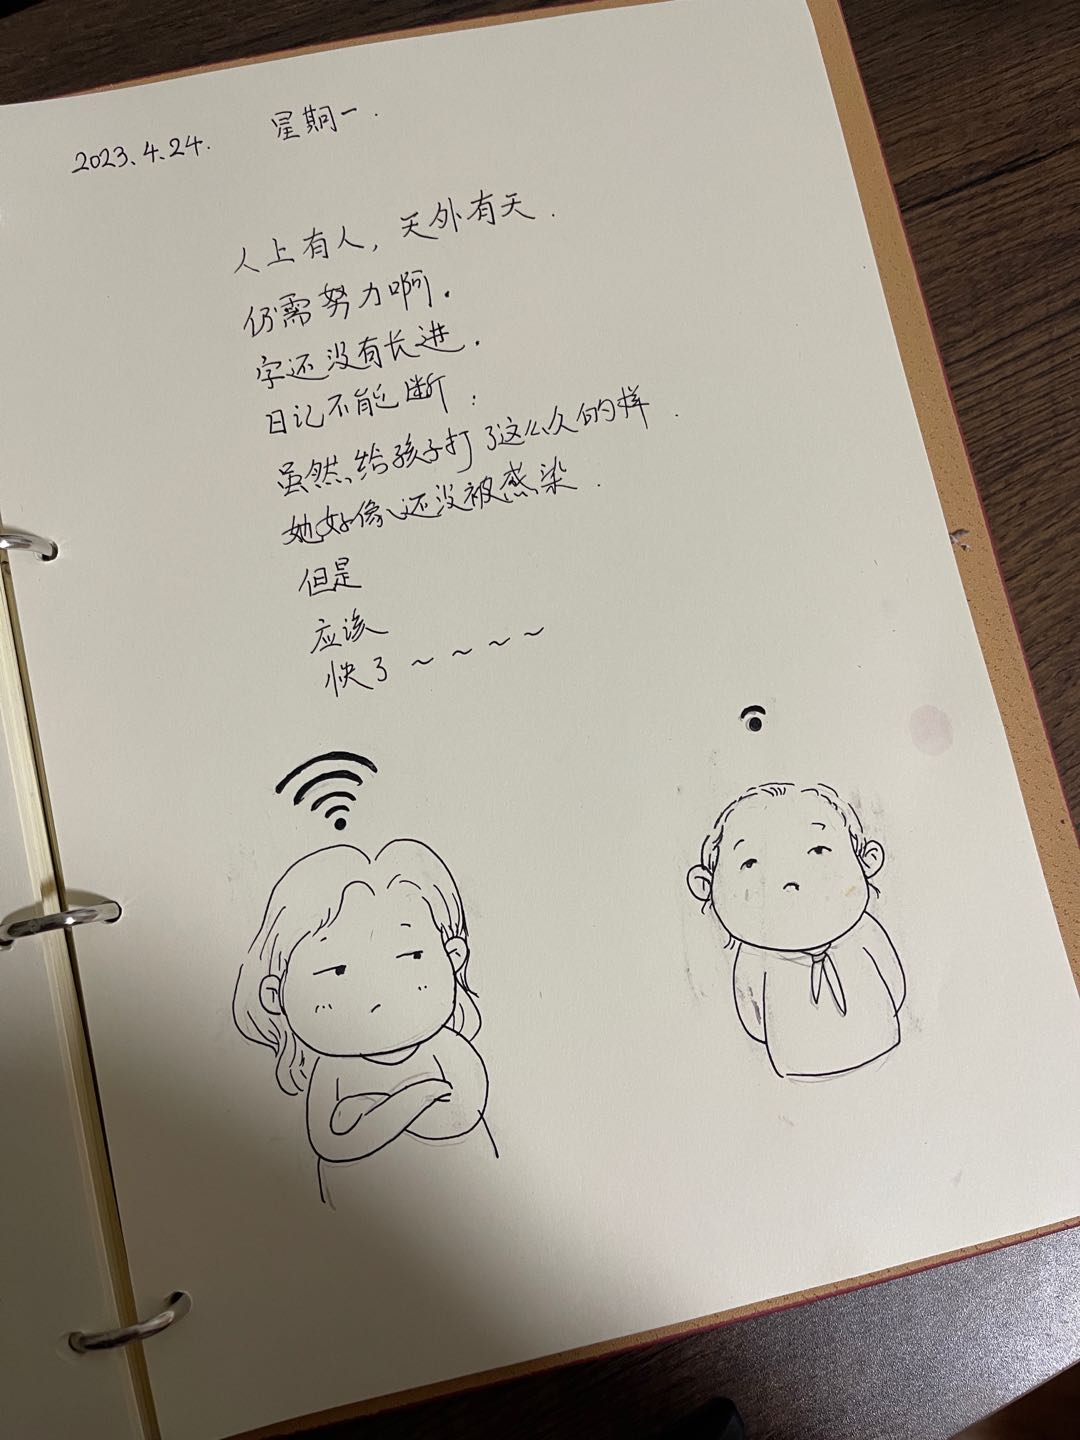 2023.4.24. 星期一.
人上有人，天外有天.
仍需努力啊.
字还没有长进.
日记不能断.
虽然给孩子打了这么久的样.
她好像还没被感染.
但是
应该
快了~~~~